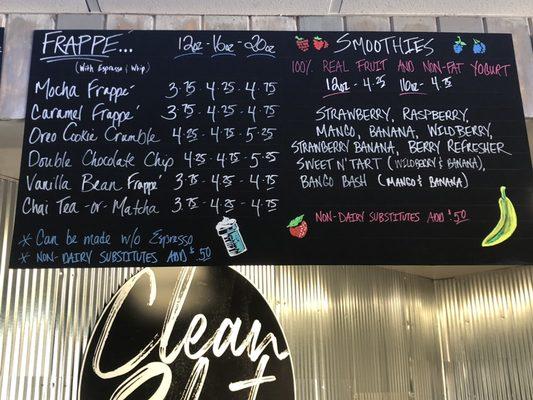 FRAPPE... 12oz - 16oz - 20oz
(With Espresso & Whip)
Mocha Frappé 3.75 - 4.25 - 4.75
Caramel Frappé 3.75 - 4.25 - 4.75
Oreo Cookie Crumble 4.25 - 4.75 - 5.25
Double Chocolate Chip 4.25 - 4.75 - 5.25
Vanilla Bean Frappé 3.75 - 4.25 - 4.75
Chai Tea -or- Matcha 3.75 - 4.25 - 4.75
* Can be made w/o Espresso
* NON-DAIRY SUBSTITUTES ADD $.50
SMOOTHIES
100% REAL FRUIT AND NON-FAT YOGURT
12oz - 4.25 16oz - 4.75
STRAWBERRY, RASPBERRY,
MANGO, BANANA, WILDBERRY,
STRAWBERRY BANANA, BERRY REFRESHER
SWEET N' TART (WILDBERRY & BANANA),
BANGO BASH (MANGO & BANANA)
NON-DAIRY SUBSTITUTES ADD $.50
Clean